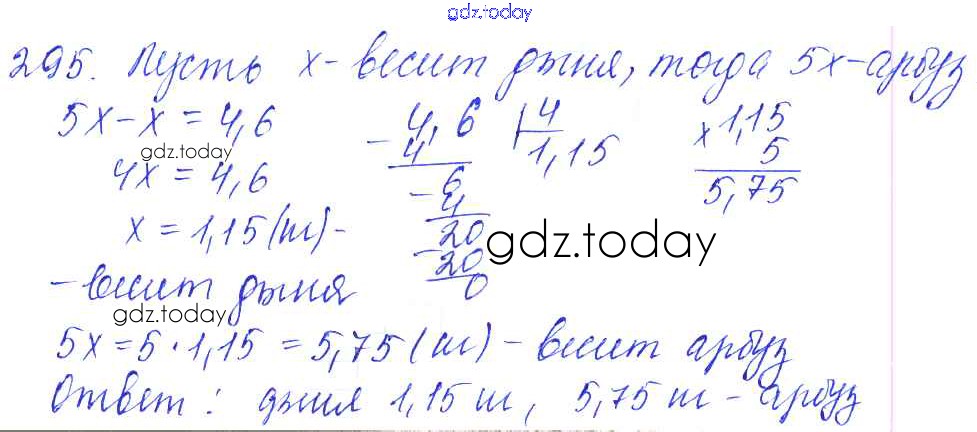 gdz.today
295. Пусть x - весит дыня, тогда 5x - арбуз
5x - x = 4,6
gdz.today
4x = 4,6
x = 1,15 (кг) -
- весит дыня
gdz.today
- 4,6 | 4
4 1,15
- 6
4
- 20
20
0
× 1,15
5
5,75
gdz.today
5x = 5 · 1,15 = 5,75 (кг) - весит арбуз
Ответ: дыня 1,15 кг, 5,75 кг - арбуз